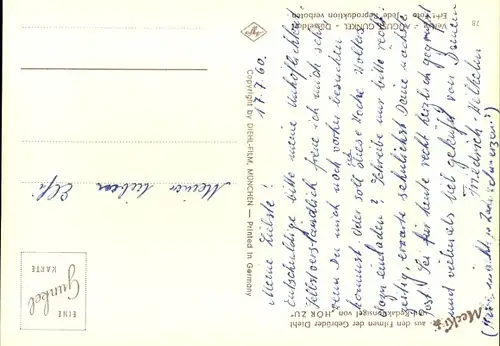 Mecki
aus den Filmen der Gebrüder Diehl
Redaktionsigel von „HÖR ZU"
17.7.60.
Meine Liebste!
Entschuldige bitte meine Unhöflichkeit!
Selbstverständlich freue ich mich sehr,
wenn Du mich noch vorher besuchen
kommst. Oder soll ich diese Woche Wolters
dazu einladen? Schreibe mir bitte recht-
zeitig, erwarte sehnlichst Deine nächste
Post! Sei für heute recht herzlich gegrüßt
und vielemals lieb geküßt von Deinem
Friedrich-Wilhelm
Copyright by DIEHL-FILM, MÜNCHEN — Printed in Germany
Agfa
Verlag AUGUST GUNKEL - Düsseldorf
Echt Foto Jede Reproduktion verboten
78
Meiner lieben Elfi
EINE
Gunkel
KARTE